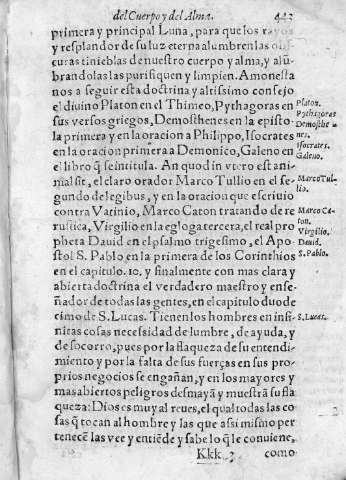 del Cuerpo y del Alma. 443
primera y principal Luna, para que los rayos
y resplandor de su luz eterna alumbren las obs
curas tinieblas de nuestro cuerpo y alma, y alũ
brandolas las purifiquen y limpien. Amonesta
nos a seguir esta doctrina y altissimo consejo
el divino Platon en el Thimeo, Pythagoras en
sus versos griegos, Demosthenes en la episto-
la primera y en la oracion a Philippo, Isocrates
en la oracion primera a Demonico, Galeno en
el libro q̃ se intitula. An quod in vtero est ani-
mal sit, el claro orador Marco Tullio en el se-
gundo de legibus, y en la oracion que escriuio
contra Vatinio, Marco Caton tratando de re
rustica, Virgilio en la egloga tercera, el real pro
pheta Dauid en el psalmo trigesimo, el Apo-
stol S. Pablo en la primera de los Corinthios
en el capitulo. 10. y finalmente con mas clara y
abierta doctrina el verdadero maestro y ense-
ñador de todas las gentes, en el capitulo duode
cimo de S. Lucas. Tienen los hombres en infi-
nitas cosas necessidad de lumbre, de ayuda, y
de socorro, pues por la flaqueza de su entendi-
miento y por la falta de sus fuerças en sus pro-
prios negocios se engañan, y en los mayores y
mas abiertos peligros desmayã y muestrã su fla
queza: Dios es muy al reues, el qual todas las co
sas q̃ tocan al hombre y las que assi mismo per
tenecẽ las vee y entiẽde y sabe lo q̃ le conuiene,
Kkk 3 como
Platon.
Pythagoras
Demosthe
nes.
Isocrates.
Galeno.
Marco Tul-
lio.
Marco Ca-
ton.
Virgilio.
Dauid.
S. Pablo.
S. Lucas.